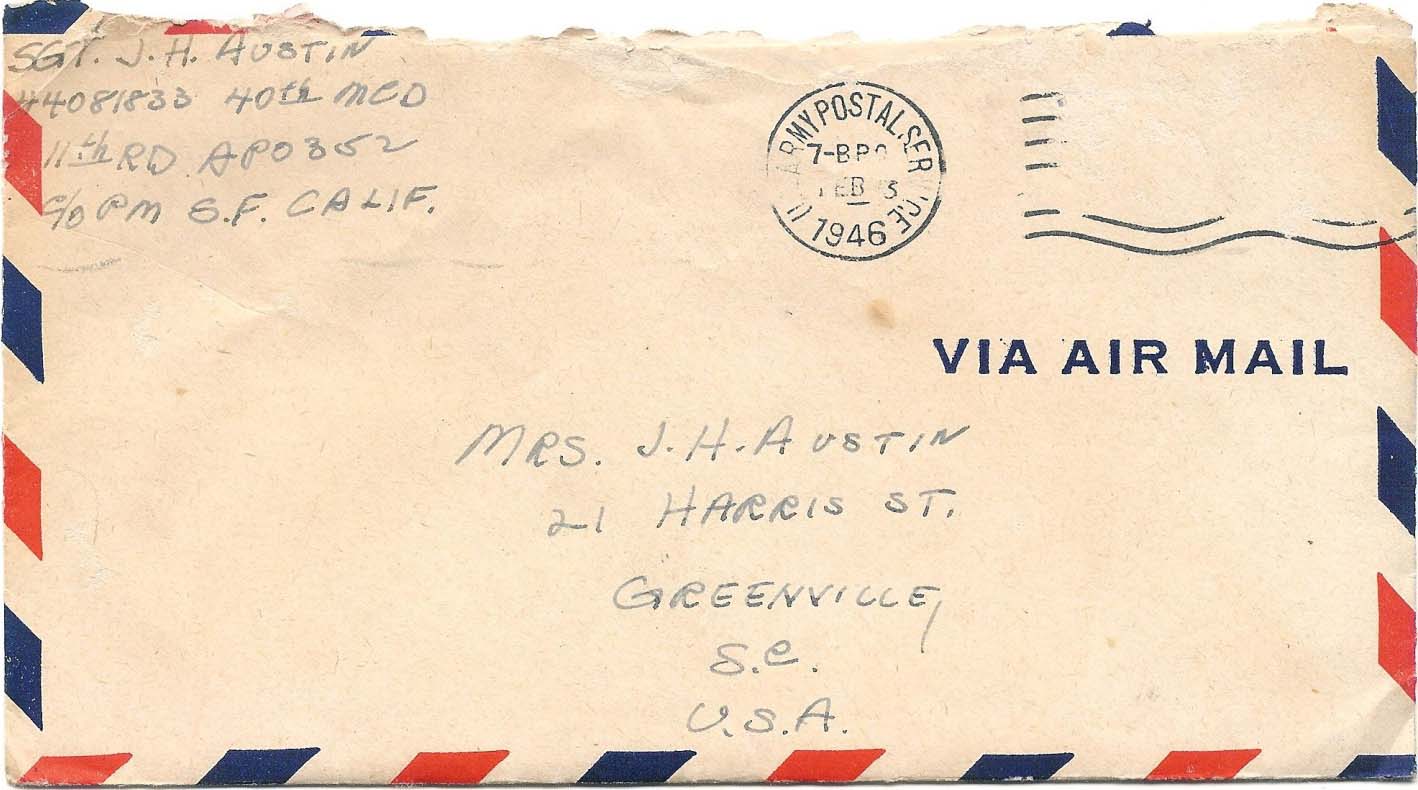 SGT. J. H. AUSTIN
44081833 40th MCD
11th RD APO 352
C/O PM S.F. CALIF.
ARMY POSTAL SERVICE
7-BPO
FEB
1946
VIA AIR MAIL
MRS. J. H. AUSTIN
21 HARRIS ST.
GREENVILLE,
S.C.
U.S.A.